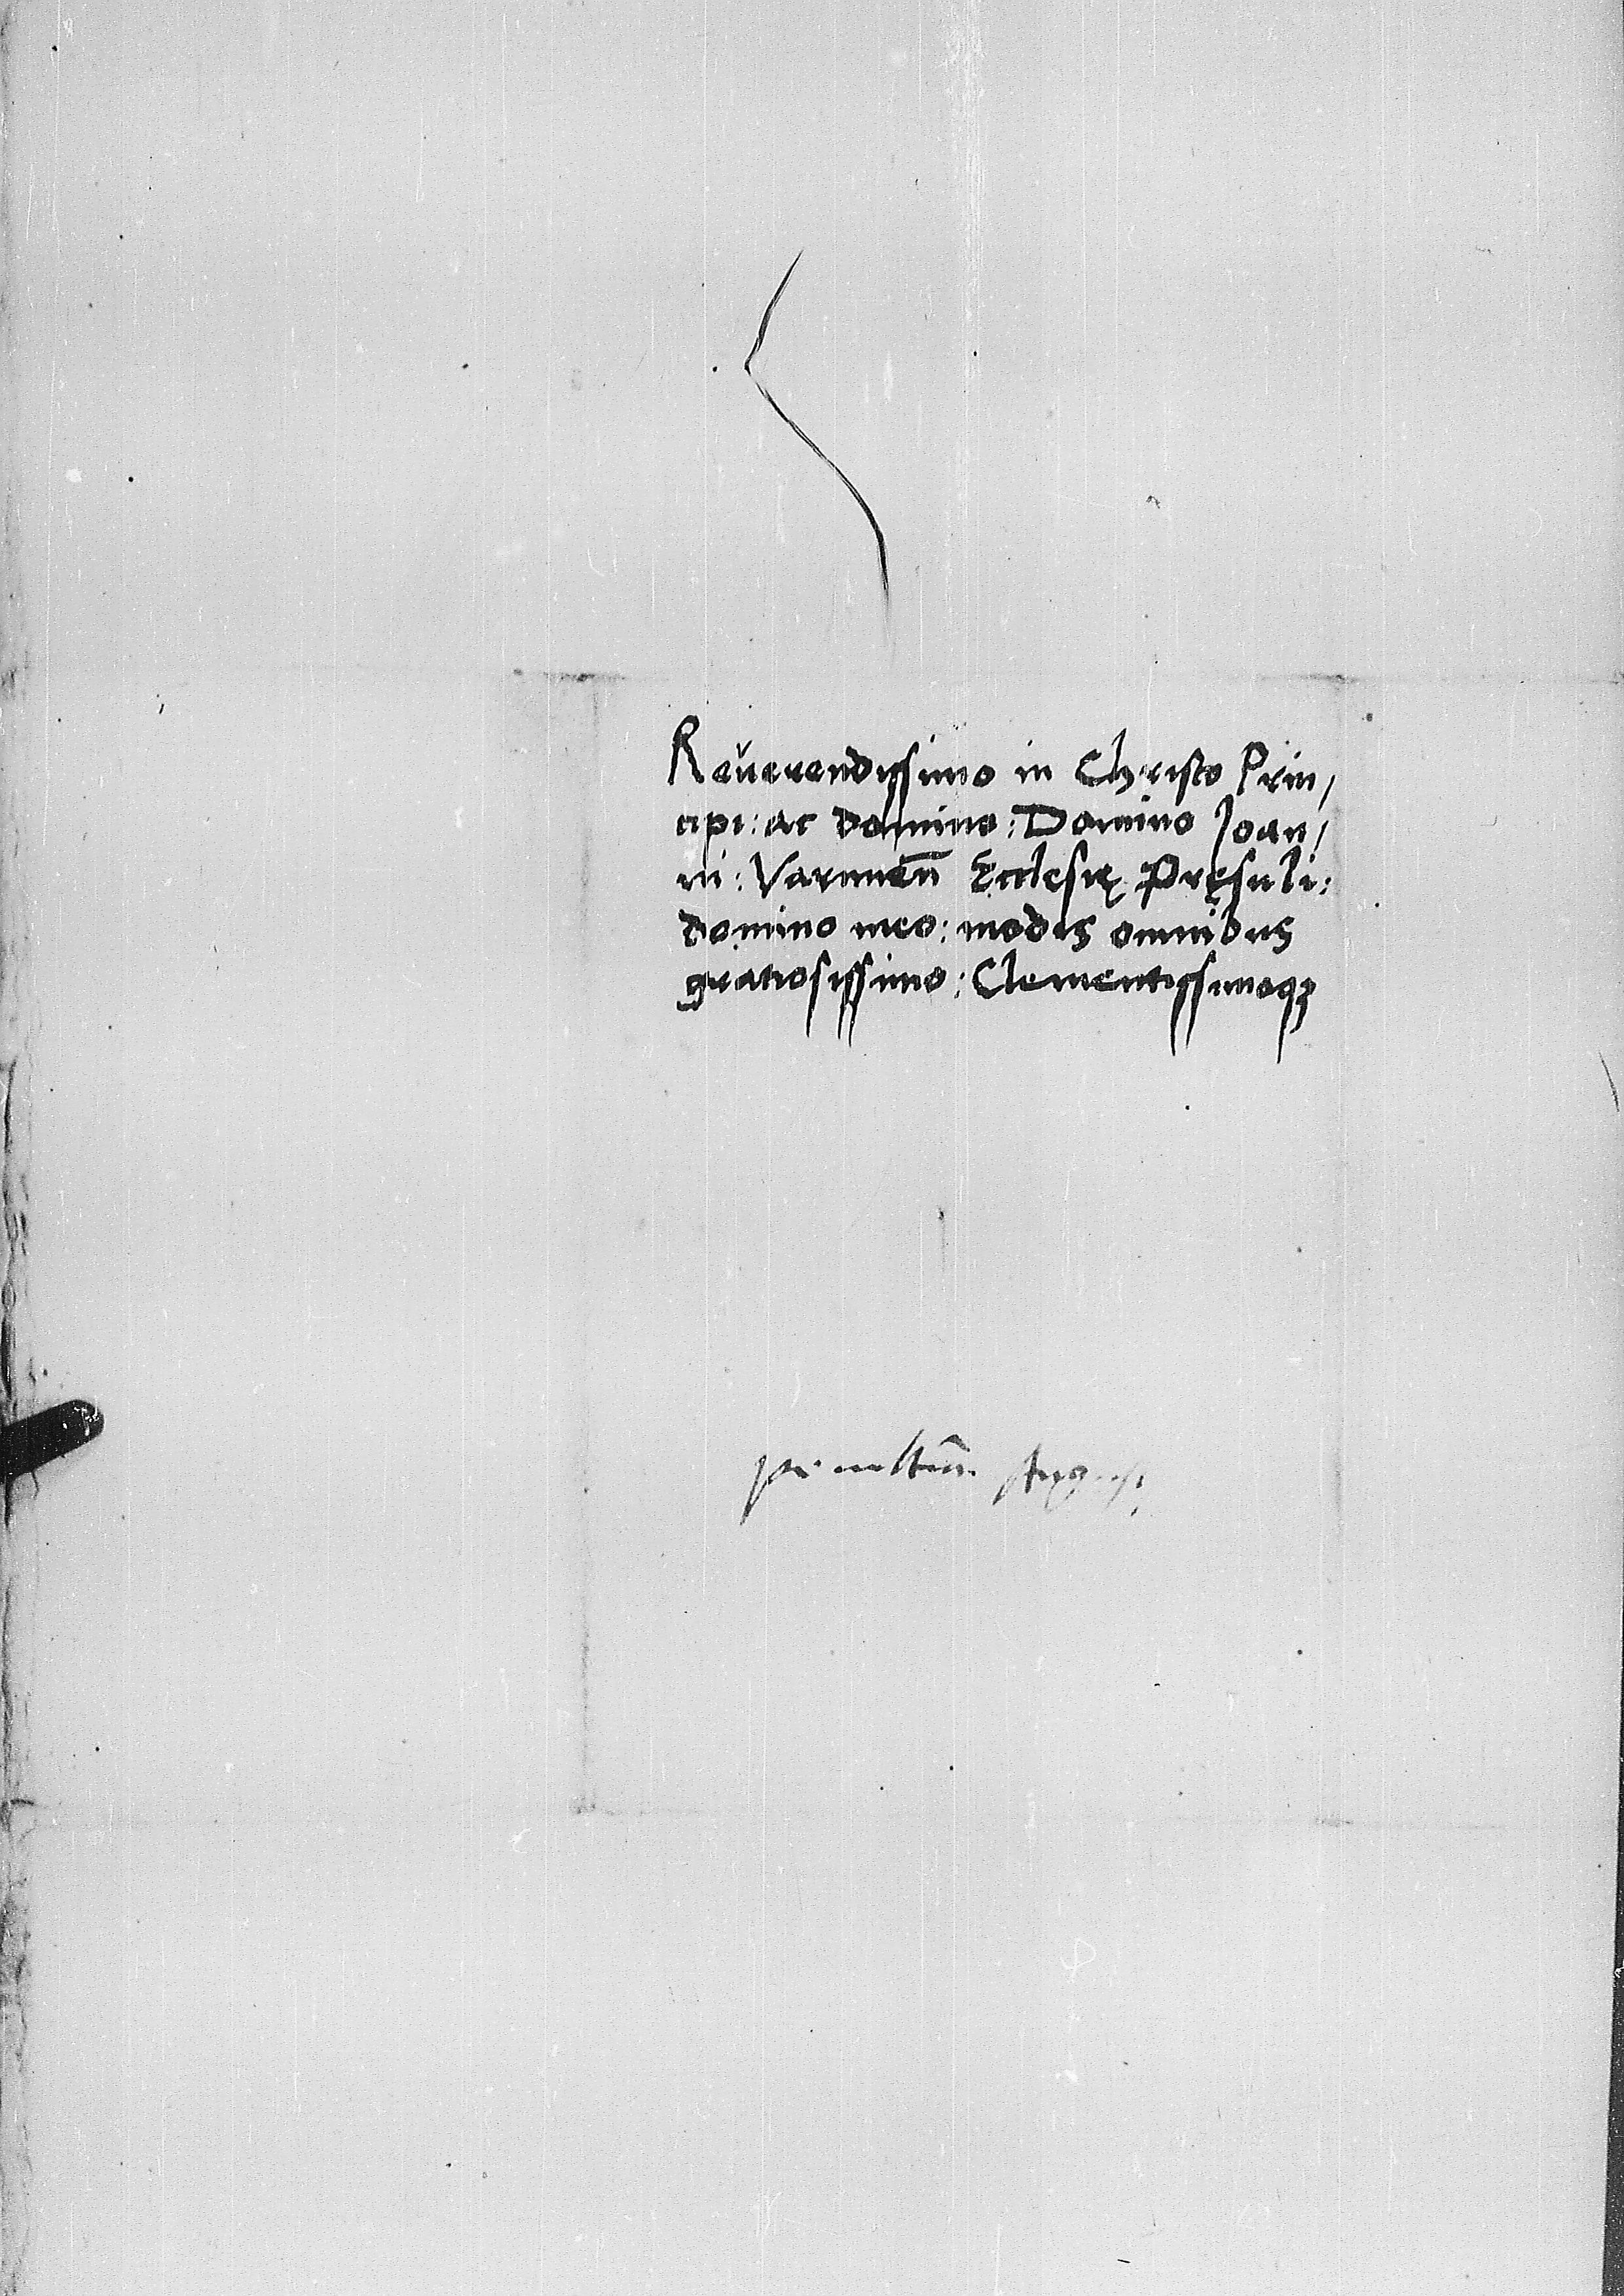 Reŭerendissimo in Christo Prin/
cipi: ac domino: Domino Joan/
ni: Varmien̄ Ecclesię Pręsuli:
domino meo: modis omnibus
gratiosissimo: Clementissimoqꝫ